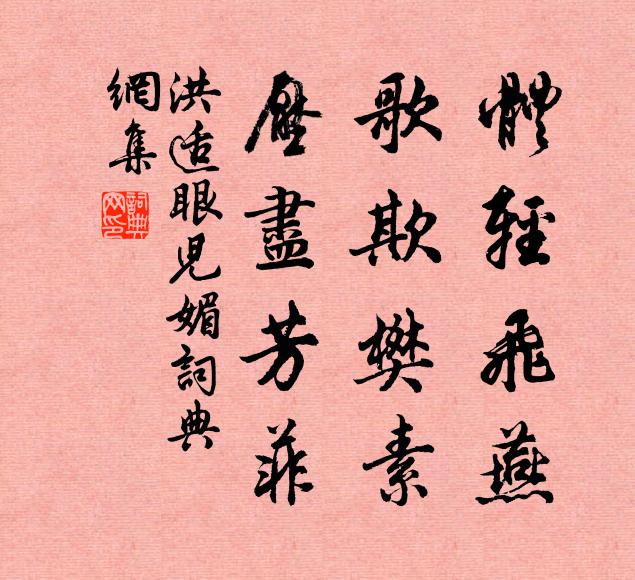 體輕飛燕
歌欺樊素
壓盡芳菲
洪适眼兒媚詞典
網集
詞典網印